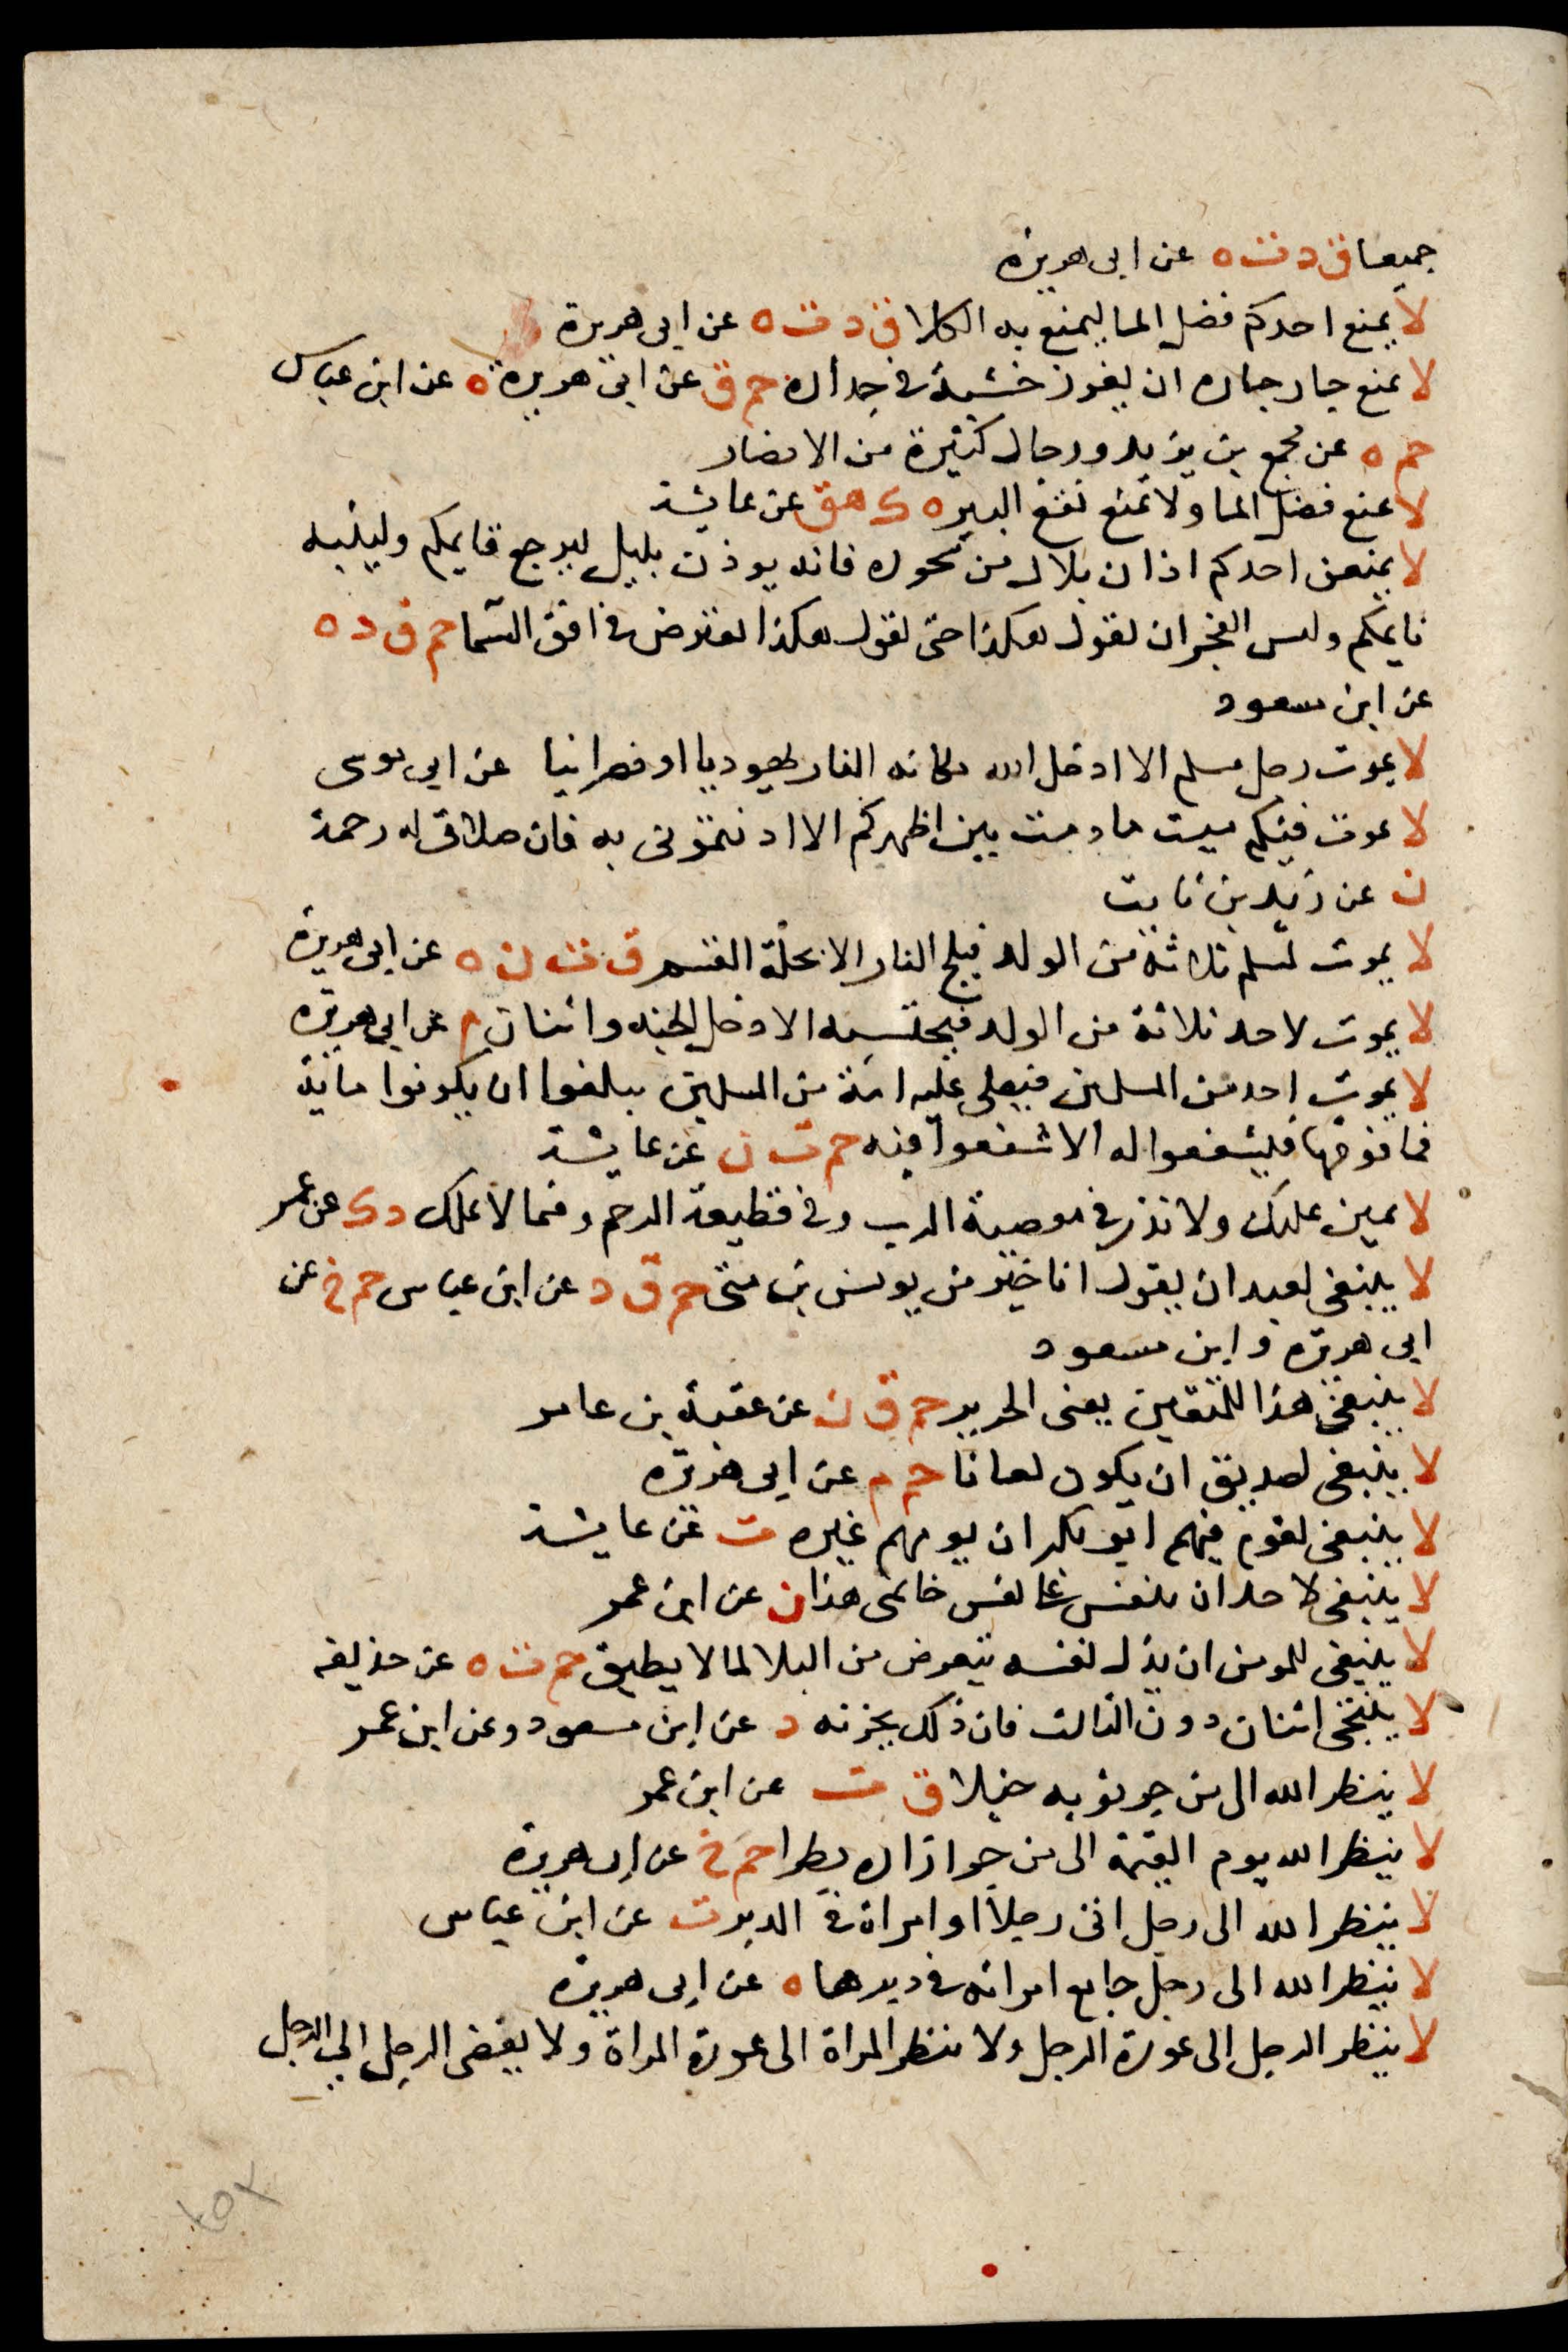 جميعا ق د ت ه عن ابى هريرة
لا يمنع احدكم فضل الما ليمنع به الكلا ق د ت ه عن ابى هريرة
لا يمنع جار جاره ان يغرز خشبة فى جداره حم ق عن ابى هريرة ه عن ابن عباس
حم ه عن مجمع بن يزيد ورجال كثيرة من الانصار
لا يمنع فضل الما ولا يمنع نقع البير ه ك هق عن عايشة
لا يمنعن احدكم اذان بلال من سحوره فانه يوذن بليل ليرجع قايمكم ولينبه
نايمكم وليس الفجر ان يقول هكذا حتى يقول هكذا يعترض فى افق السما حم ق د ه
عن ابن مسعود
لا يموت رجل مسلم الا ادخل الله مكانه النار يهوديا او نصرانيا عن ابى موسى
لا يموت فيكم ميت ما دمت بين اظهركم الا اذنتمونى به فان صلاتى له رحمة
ن عن زيد بن ثابت
لا يموت لمسلم ثلاثة من الولد فيلج النار الا تحلة القسم ق ت ن ه عن ابى هريرة
لا يموت لاحد ثلاثة من الولد فيحتسبه الا دخل الجنه واثنان م عن ابى هريرة
لا يموت احد من المسلمين فيصلى عليه امة من المسلمين يبلغوا ان يكونوا ماية
فما فوقها فيشفعوا له الا شفعوا فيه حم ت ن عن عايشة
لا يمين عليك ولا نذر فى معصية الرب وفى قطيعة الرحم وفيما لا يملك د ك عن عمر
لا ينبغى لعبد ان يقول انا خير من يونس بن متى حم ق د عن ابن عباس حم خ عن
ابى هريرة وابن مسعود
لا ينبغى هذا للمتقين يعنى الحرير حم ق ن عن عقبة بن عامر
لا ينبغى لصديق ان يكون لعانا حم م عن ابى هريرة
لا ينبغى لقوم فيهم ابو بكر ان يومهم غيره ت عن عايشة
لا ينبغى لاحد ان ينقش على نقش خاتمى هذا ن عن ابن عمر
لا ينبغى للمومن ان يذل نفسه يتعرض من البلا لما لا يطيق حم ت ه عن حذيفه
لا ينتجى اثنان دون الثالث فان ذلك يحزنه د عن ابن مسعود وعن ابن عمر
لا ينظر الله الى من جر ثوبه خيلا ق ت عن ابن عمر
لا ينظر الله يوم القيمة الى من جر ازاره بطرا حم خ عن ابى هريرة
لا ينظر الله الى رجل اتى رجلا او امراة فى الدبر ت عن ابن عباس
لا ينظر الله الى رجل جامع امراته فى دبرها ه عن ابى هريرة
لا ينظر الرجل الى عورة الرجل ولا تنظر المراة الى عورة المراة ولا يفضى الرجل الى الرجل